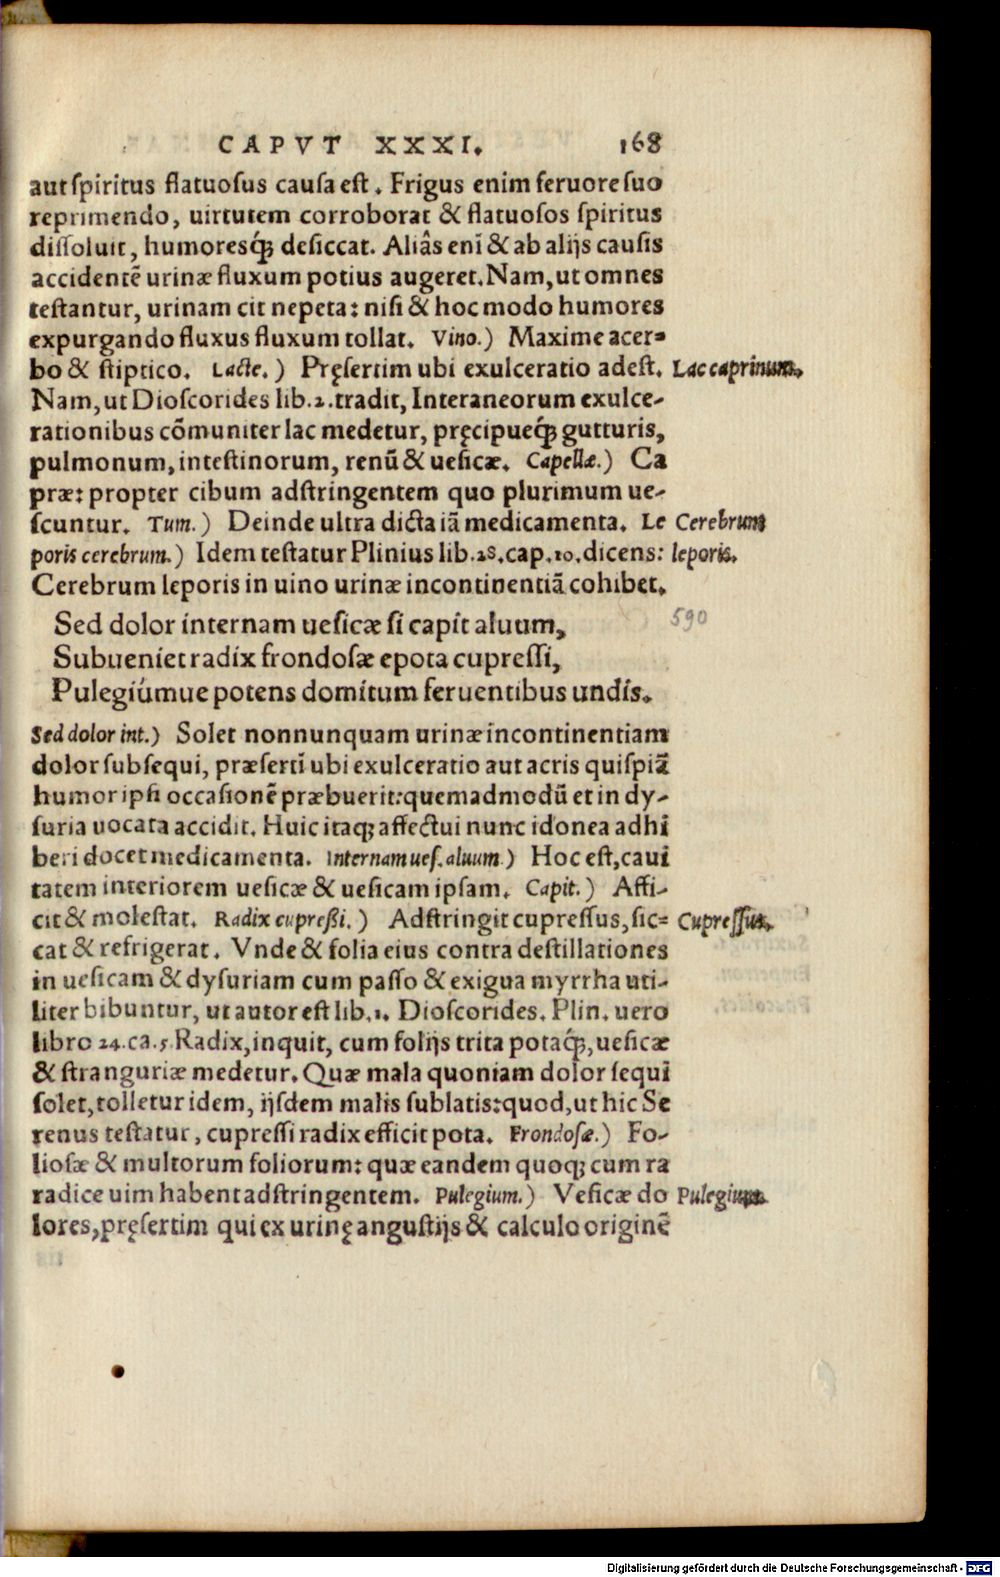 CAPVT XXXI. 168
aut spiritus flatuosus causa est. Frigus enim feruore suo
reprimendo, uirtutem corroborat & flatuosos spiritus
dissoluit, humoresq́ꝫ desiccat. Aliâs enĩ & ab alijs causis
accidentẽ urinæ fluxum potius augeret. Nam, ut omnes
testantur, urinam cit nepeta: nisi & hoc modo humores
expurgando fluxus fluxum tollat. Vino.) Maxime acer=
bo & stiptico. Lacte.) Pręsertim ubi exulceratio adest. Lac caprinum.
Nam, ut Dioscorides lib. 2. tradit, Interaneorum exulce-
rationibus cõmuniter lac medetur, pręcipueq́ꝫ gutturis,
pulmonum, intestinorum, renũ & uesicæ. Capellæ.) Ca
præ: propter cibum adstringentem quo plurimum ue-
scuntur. Tum.) Deinde ultra dicta iã medicamenta. Le Cerebrum
poris cerebrum.) Idem testatur Plinius lib. 28. cap. 10. dicens: leporis.
Cerebrum leporis in uino urinæ incontinentiã cohibet.
Sed dolor internam uesicæ si capit aluum, 590
Subueniet radix frondosæ epota cupressi,
Pulegiúmue potens domitum feruentibus undis.
Sed dolor int.) Solet nonnunquam urinæ incontinentiam
dolor subsequi, præsertĩ ubi exulceratio aut acris quispiã
humor ipsi occasionẽ præbuerit: quemadmodũ et in dy-
suria uocata accidit. Huic itaqꝫ affectui nunc idonea adhi
beri docet medicamenta. Internam ues. aluum.) Hoc est, caui
tatem interiorem uesicæ & uesicam ipsam. Capit.) Affi-
cit & molestat. Radix cupreßi.) Adstringit cupressus, sic= Cupressus.
cat & refrigerat. Vnde & folia eius contra destillationes
in uesicam & dysuriam cum passo & exigua myrrha uti-
liter bibuntur, ut autor est lib. 1. Dioscorides. Plin. uero
libro 24. ca. 5. Radix, inquit, cum folijs trita potaq́ꝫ, uesicæ
& stranguriæ medetur. Quæ mala quoniam dolor sequi
solet, tolletur idem, ijsdem malis sublatis: quod, ut hic Se
renus testatur, cupressi radix efficit pota. Frondosæ.) Fo-
liosæ & multorum foliorum: quæ eandem quoqꝫ cum ra
radice uim habent adstringentem. Pulegium.) Vesicæ do Pulegium.
lores, pręsertim qui ex urinę angustijs & calculo originẽ
Digitalisierung gefördert durch die Deutsche Forschungsgemeinschaft - DFG